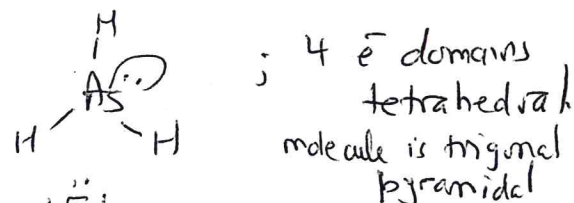 H
As
H H
; 4 e⁻ domains
tetrahedral
molecule is trigonal
pyramidal